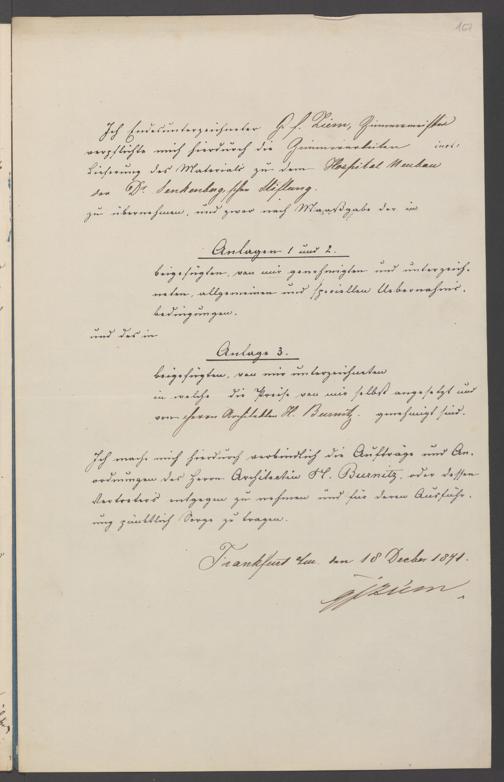 167
Ich Endesunterzeichneter G. f. Ziem, Zimmermeister
verpflichte mich hierdurch die Zimmerarbeiten incl.
Lieferung des Materials zu dem Hospital Neubau
der Dr. Senkenberg'schen Stiftung.
zu übernehmen, und zwar nach Maaßgabe der in
Anlagen 1 und 2.
beigefügten, von mir genehmigten und unterzeich-
neten, allgemeinen und speciellen Uebernahms-
bedingungen.
und des in
Anlage 3.
beigefügten, von mir unterzeichneten
in welche die Preise von mir selbst angesetzt und
von Herrn Architekten H. Burnitz. genehmigt sind.
Ich mache mich hierdurch verbindlich die Aufträge und An-
ordnungen des Herrn Architecten H. Burnitz. oder dessen
Vertreters entgegen zu nehmen und für deren Ausführ-
ung pünktlich Sorge zu tragen.
Frankfurt a/m. den 18 Decber 1871.
G f Ziem